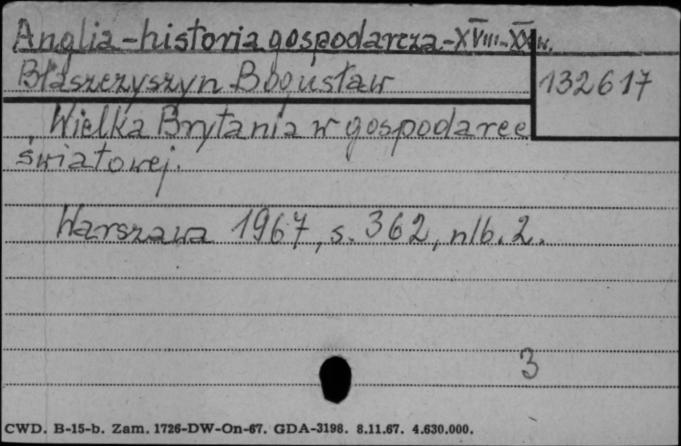 Anglia - historia gospodarcza - XVIII-XX w.
Błaszczyszyn Bogusław
132617
Wielka Brytania w gospodarce
światowej.
Warszawa 1967, s. 362, nlb. 2.
3
CWD. B-15-b. Zam. 1726-DW-On-67. GDA-3198. 8.11.67. 4.630.000.